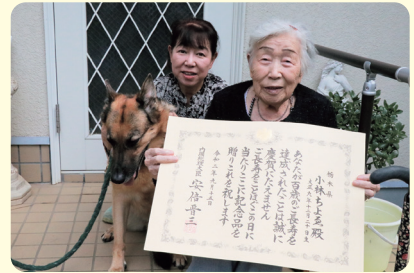 栃木県
小林ちよゑ殿
あなたが百歳のご長寿を
達成されたことは誠に
慶賀にたえません
ご長寿をことほぐこの日に
当たりここに記念品を
贈りこれを祝します
令和二年九月十五日
内閣総理大臣 安倍晋三